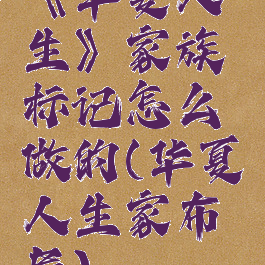 《华夏人
生》家族
标记怎么
做的(华夏
人生家布